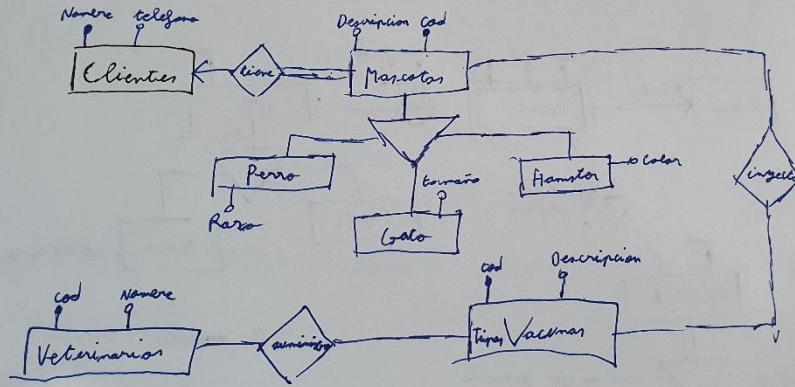 Nombre telefono
Descripcion cod
Clientes
tiene
Mascotas
Perro
Raza
tamaño
Gato
Hamster
Color
inyect
cod
Nombre
Veterinarios
suministra
cod
Descripcion
Tipos Vacunas